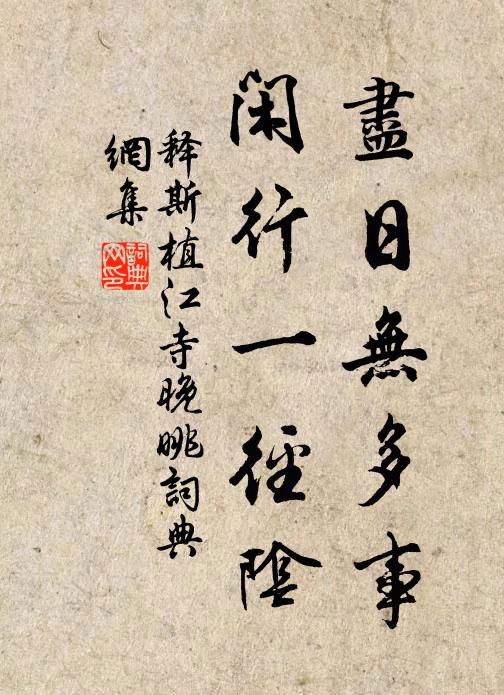 盡日無多事
閑行一徑陰
释斯植江寺晚眺詞典
網集
詞典
网印